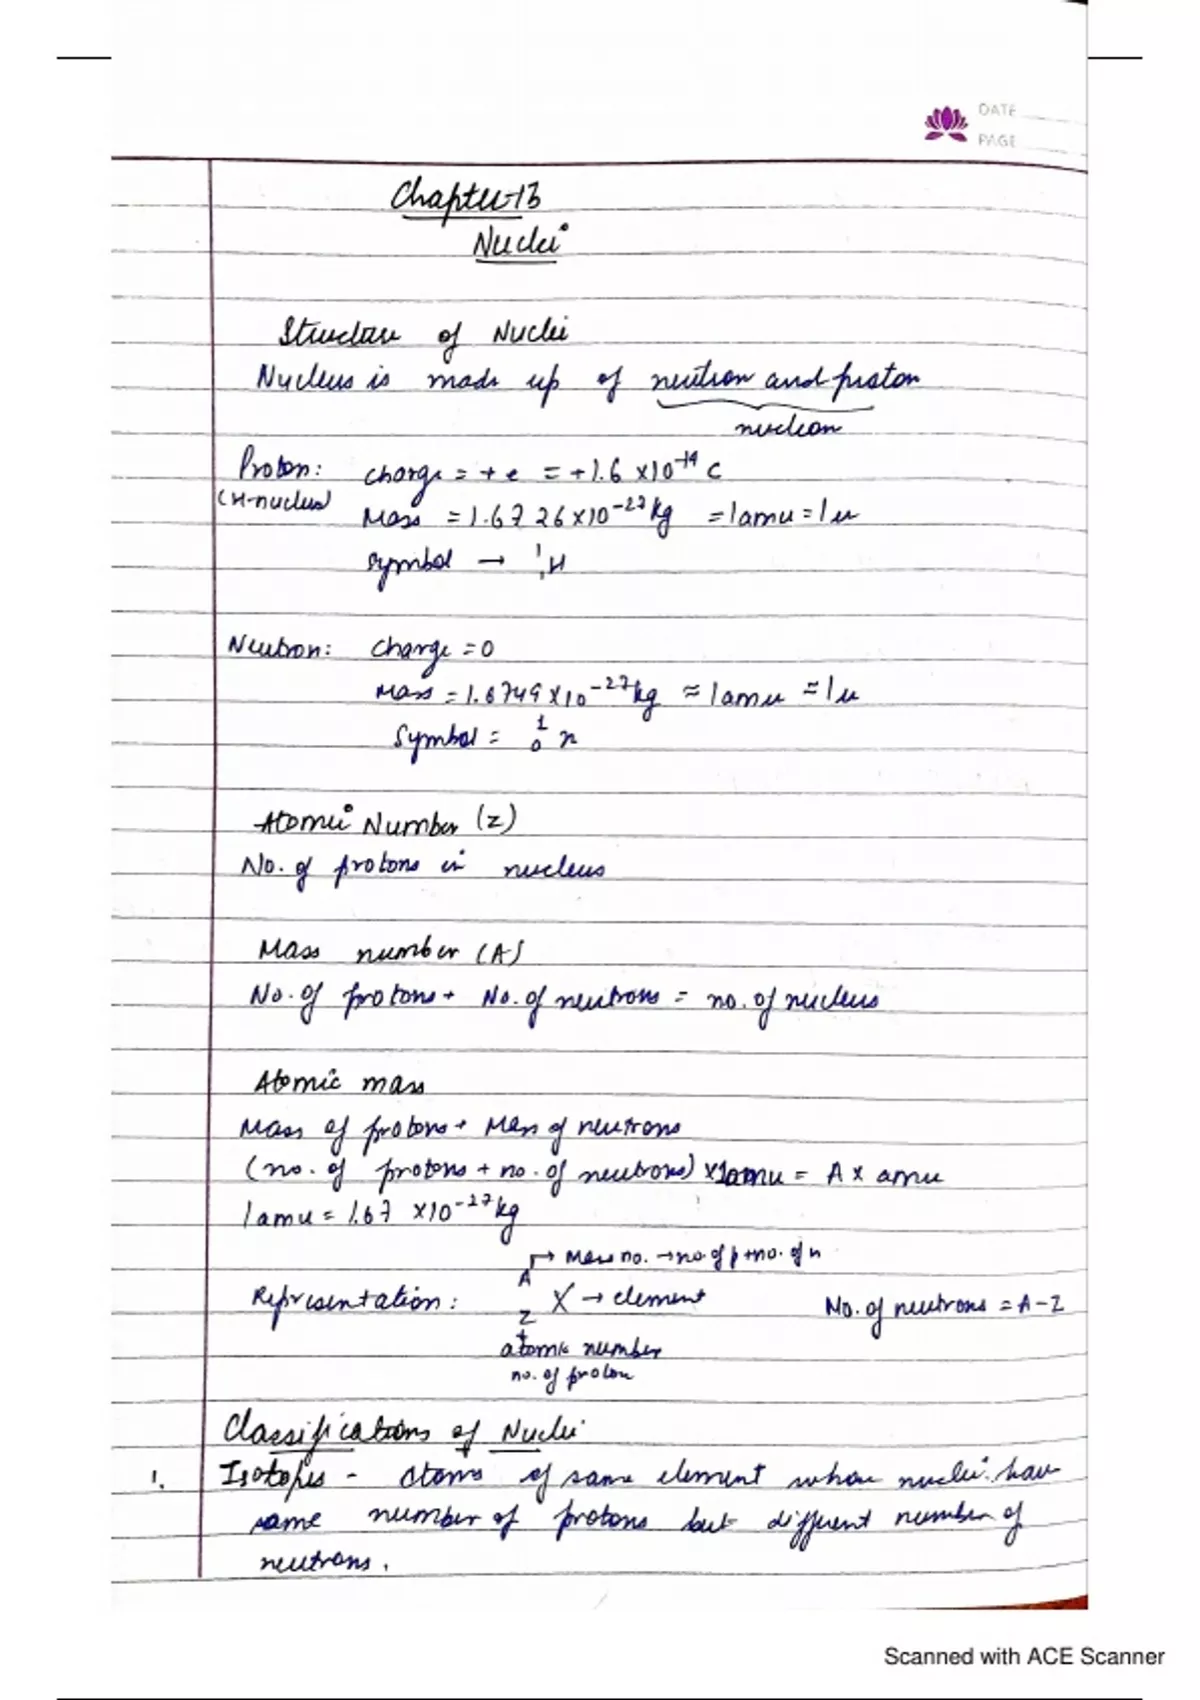 DATE
PAGE
Chapter-13
Nuclei
Structure of Nuclei
Nucleus is made up of neutron and proton
nucleon
Proton: charge = +e = +1.6 ×10⁻¹⁹ C
(H-nucleus)
Mass = 1.6726×10⁻²⁷kg = 1amu = 1u
Symbol → ¹₁H
Neutron: charge = 0
Mass = 1.6749×10⁻²⁷kg ≈ 1amu ≈ 1u
Symbol = ¹₀n
Atomic Number (Z)
No. of protons in nucleus
Mass number (A)
No. of protons + No. of neutrons = no. of nucleus
Atomic mass
Mass of protons + Mass of neutrons
(no. of protons + no. of neutrons) × 1amu = A × amu
1amu = 1.67 ×10⁻²⁷kg
→ Mass no. → no. of p + no. of n
A
Representation: X → element No. of neutrons = A-Z
Z
atomic number
no. of proton
Classifications of Nuclei
1. Isotopes - atoms of same element whose nuclei have
same number of protons but different number of
neutrons.
Scanned with ACE Scanner